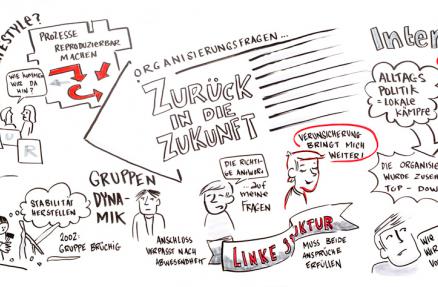 ESTYLE?
PROZESSE
REPRODUZIERBAR
MACHEN
WIE KOMMEN
WIR DA
HIN?
U R
ORGANISIERUNGSFRAGEN...
ZURÜCK
IN DIE
ZUKUNFT
STABILITÄT
HERSTELLEN
2002:
GRUPPE BRÜCHIG
GRUPPEN
DYNA-
MIK
ANSCHLUSS
VERPASST NACH
ABWESENDHEIT
DIE RICHTI-
GE ANTWORT
...auf
meine
FRAGEN
VERUNSICHERUNG
BRINGT MICH
WEITER!
LINKE STRUKTUR
MUSS BEIDE
ANSPRÜCHE
ERFÜLLEN
Inter
ALLTAGS
POLITIK
= LOKALE
KÄMPFE
DIE ORGANISIE
WURDE ZUSEH
TOP - DOW
WIE
WIR
VO